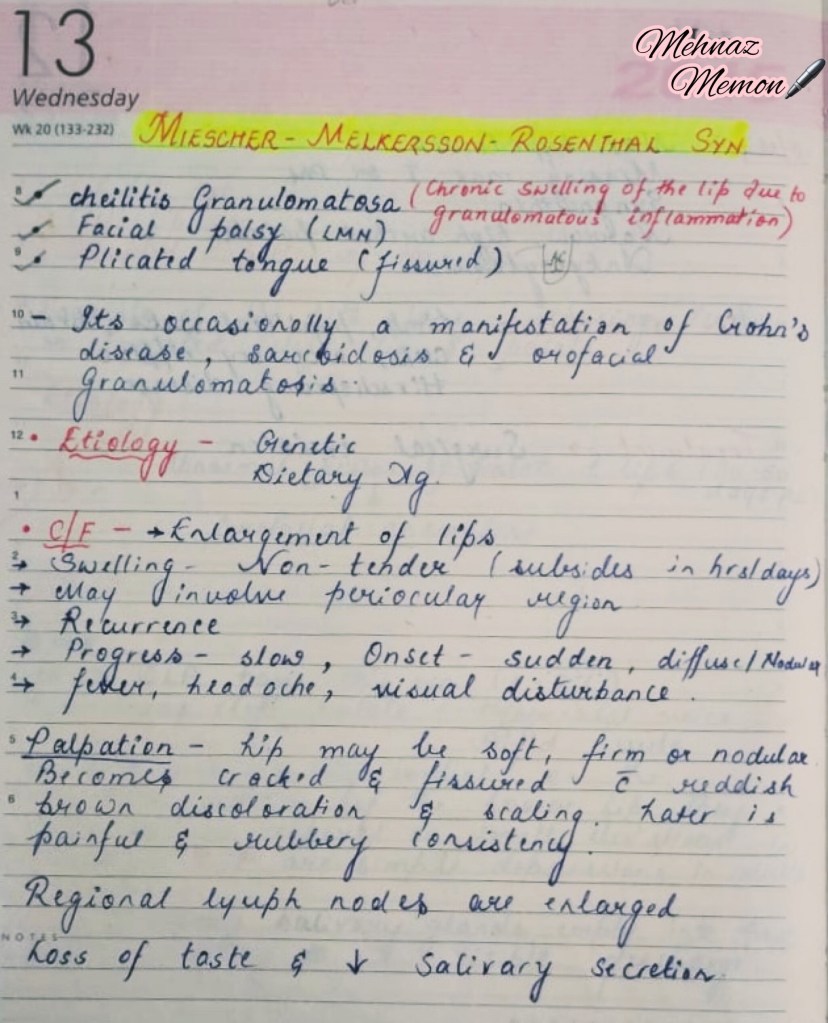 13
Wednesday
Wk 20 (133-232)
Mehnaz
Memon
MIESCHER - MELKERSSON - ROSENTHAL SYN.
8 cheilitis Granulomatosa (Chronic swelling of the lip due to
granulomatous inflammation)
Facial palsy (LMN)
9 Plicated tongue (fissured)
10 - Its occasionally a manifestation of Crohn's
disease, sarcoidosis & orofacial
11 granulomatosis.
12 • Etiology - Genetic
Dietary Ag.
1
• C/F - → Enlargement of lips
2 → Swelling - Non-tender (subsides in hrs/days)
→ May involve periocular region
3 → Recurrence
→ Progress - slow, Onset - sudden, diffuse/Nodular
4 → fever, headache, visual disturbance.
5 Palpation - Lip may be soft, firm or nodular
Becomes cracked & fissured c̄ reddish
6 brown discoloration & scaling. Later is
painful & rubbery consistency.
Regional lymph nodes are enlarged
NOTES
Loss of taste & ↓ salivary secretion.